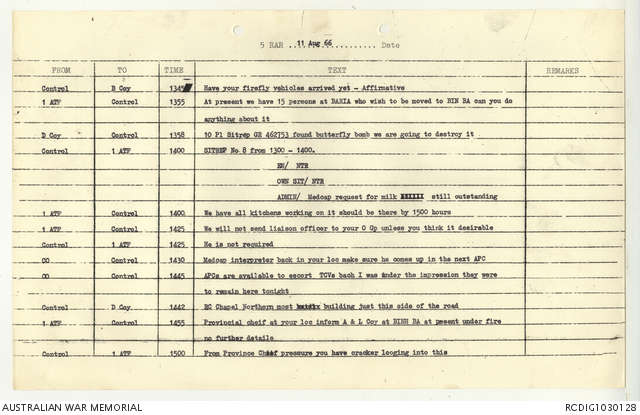 5 RAR ... 11 Aug 66 ........... Date
FROM TO TIME TEXT REMARKS
Control B Coy 1345 Have your firefly vehicles arrived yet - Affirmative
1 ATF Control 1355 At present we have 15 persons at DARIA who wish to be moved to BIN BA can you do
anything about it
D Coy Control 1358 10 Pl Sitrep GR 462753 found butterfly bomb we are going to destroy it
Control 1 ATF 1400 SITREP No 8 from 1300 - 1400.
EN/ NTR
OWN SIT/ NTR
ADMIN/ Medcap request for milk still outstanding
1 ATF Control 1400 We have all kitchens working on it should be there by 1500 hours
1 ATF Control 1425 We will not send liaison officer to your O Gp unless you think it desirable
Control 1 ATF 1425 He is not required
CO Control 1430 Medcap interpreter back in your loc make sure he comes up in the next APC
CO Control 1445 APCs are available to escort TCVs bach I was under the impression they were
to remain here tonight
Control D Coy 1442 RC Chapel Northern most building just this side of the road
1 ATF Control 1455 Provincial cheif at your loc inform A & L Coy at BINH BA at present under fire
no further details
Control 1 ATF 1500 From Province Chief pressure you have cracker looging into this
AUSTRALIAN WAR MEMORIAL RCDIG1030128